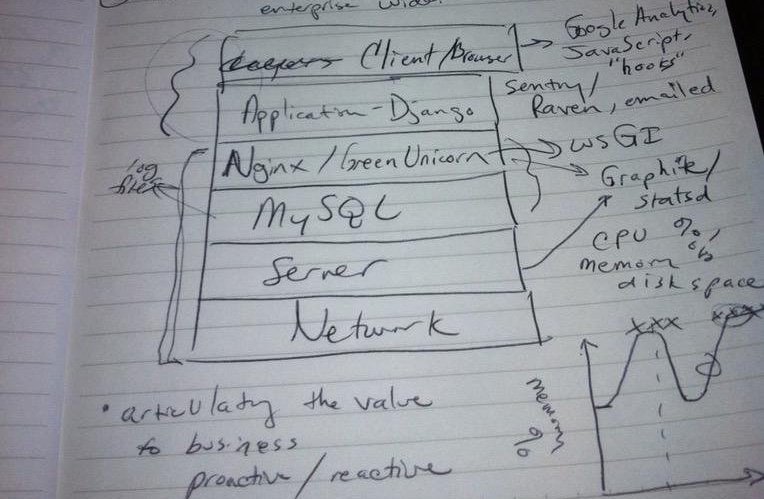 enterprise wide
Client/Browser
Google Analytics,
JavaScript,
"hooks"
Application-Django
Sentry/
Raven, emailed
Nginx/GreenUnicorn
WSGI
log
files
Graphite/
statsd
MySQL
CPU %,
memory %
disk space
Server
Network
XXX
XXX
memory %
• articulating the value
to business
proactive/reactive